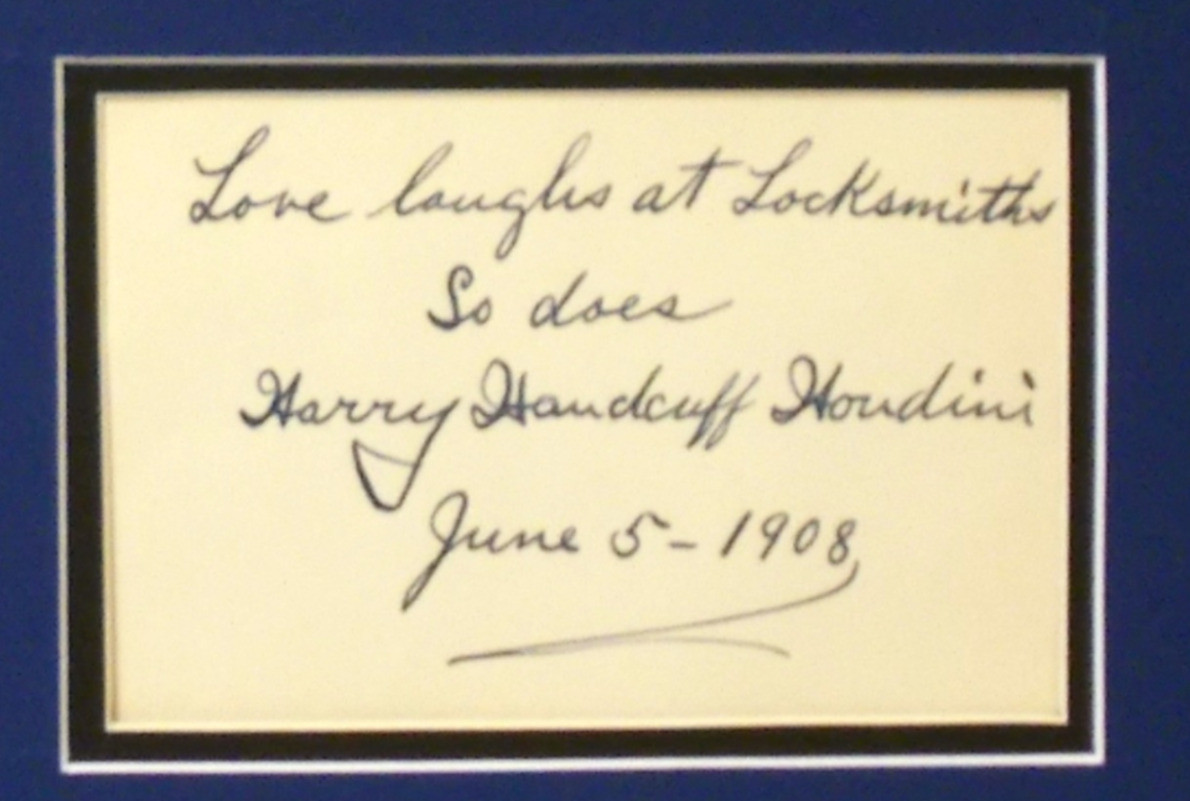 Love laughs at Locksmiths
So does
Harry Handcuff Houdini
June 5 - 1908